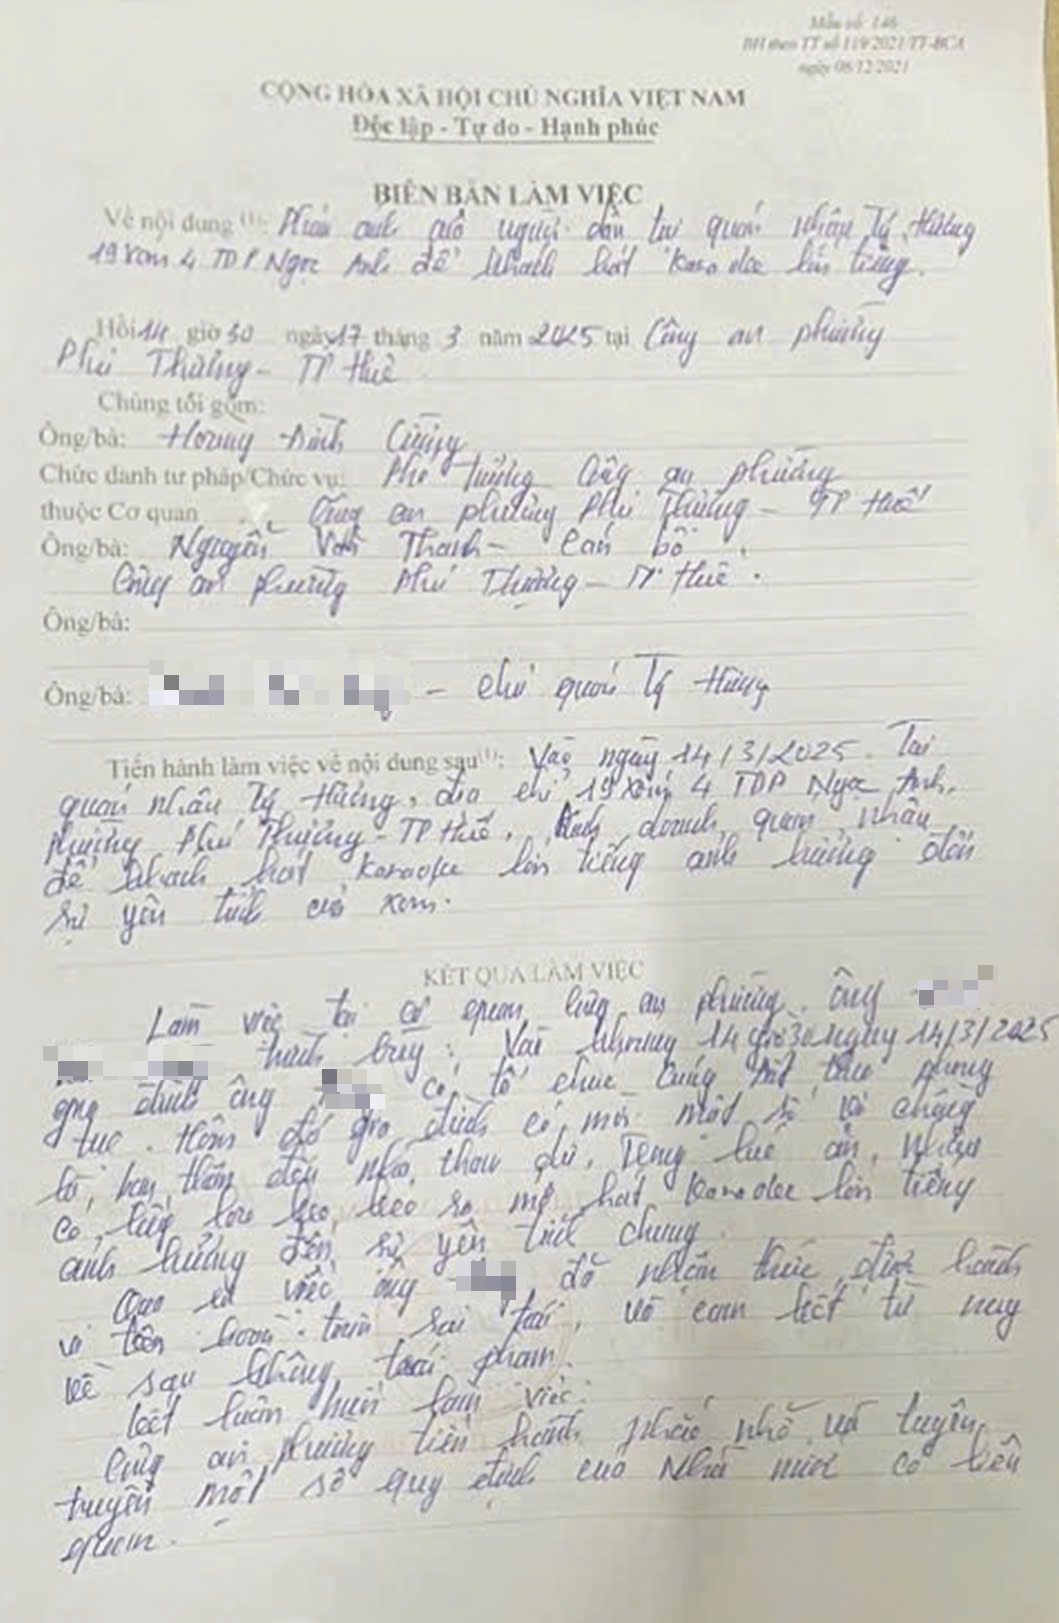 Mẫu số: 146
BH theo TT số 119/2021/TT-BCA
ngày 08/12/2021
CỘNG HÒA XÃ HỘI CHỦ NGHĨA VIỆT NAM
Độc lập - Tự do - Hạnh phúc
BIÊN BẢN LÀM VIỆC
Về nội dung (1): Phản ánh của người dân tại quán nhậu Tý Hường
19 xóm 4 TDP Ngọc Anh để khách hát Karaokee lớn tiếng.
Hồi 14 giờ 30 ngày 17 tháng 3 năm 2025 tại Công an phường
Phú Thượng - TP Huế.
Chúng tôi gồm:
Ông/bà: Hoàng Đình Cường
Chức danh tư pháp/Chức vụ: Phó trưởng Công an phường
thuộc Cơ quan Công an phường Phú Thượng - TP Huế
Ông/bà: Nguyễn Văn Thanh - Cán bộ
Công an phường Phú Thượng - TP Huế.
Ông/bà:
Ông/bà: - chủ quán Tý Hường
Tiến hành làm việc về nội dung sau (1): Vào ngày 14/3/2025. Tại
quán nhậu Tý Hường, địa chỉ 19 xóm 4 TDP Ngọc Anh,
phường Phú Thượng - TP Huế. Kinh doanh quán nhậu
để khách hát Karaoke lớn tiếng ảnh hưởng đến
sự yên tĩnh của xóm.
KẾT QUẢ LÀM VIỆC
Làm việc tại cơ quan Công an phường, ông
trình bày: Vào khoảng 14 giờ 30 ngày 14/3/2025
gia đình ông có tổ chức cúng đất theo phong
tục. Hôm đó gia đình có mời một số bà
con, thân đến nhà tham dự. Trong lúc ăn, nhậu
có hát Karaokee lớn tiếng
ảnh hưởng đến sự yên tĩnh chung.
Qua sự việc ông đã nhận thức được hành
vi trên hoàn toàn sai trái, và cam kết từ nay
về sau không tái phạm.
Kết luận buổi làm việc:
Công an phường tiến hành nhắc nhở và tuyên
truyền một số quy định của Nhà nước có liên
quan.